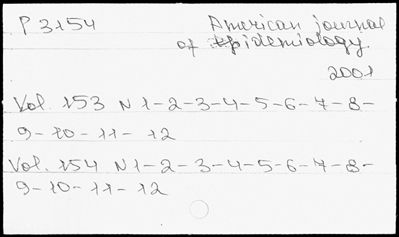 P 3154 American journal
of epidemiology
2001
Vol. 153 N 1-2-3-4-5-6-7-8-
9-10-11-12
Vol. 154 N 1-2-3-4-5-6-7-8-
9-10-11-12